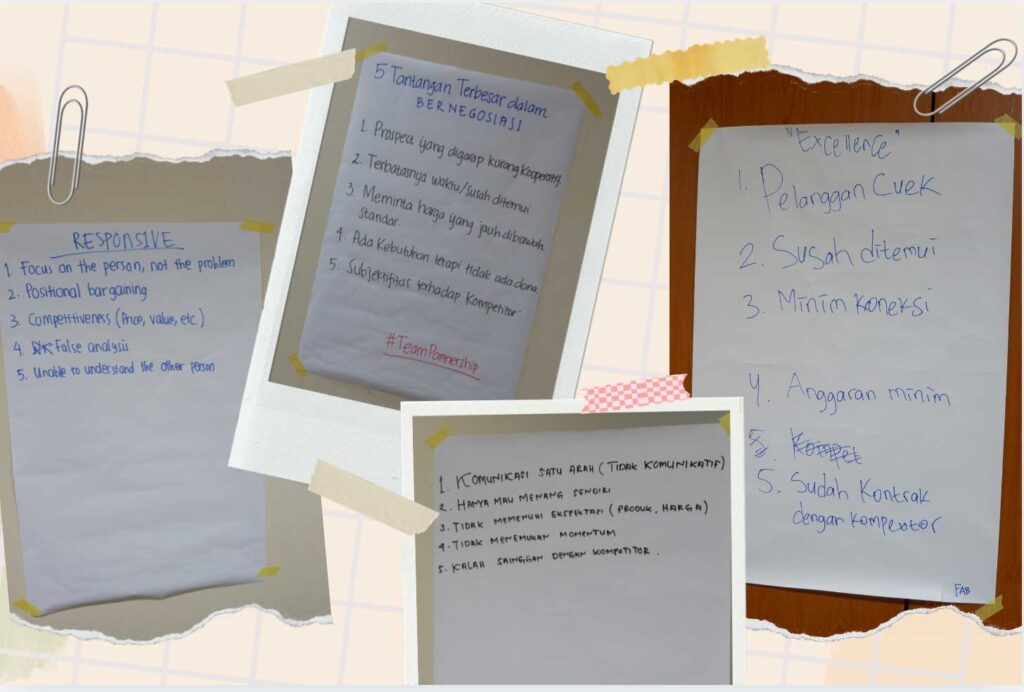 RESPONSIVE
1. Focus on the person, not the problem
2. Positional bargaining
3. Competitiveness (Price, value, etc.)
4. False analysis
5. Unable to understand the other person
5 Tantangan Terbesar dalam
BERNEGOSIASI
1. Prospect yang digarap kurang kooperatif.
2. Terbatasnya waktu/susah ditemui
3. Meminta harga yang jauh dibawah
standar.
4. Ada kebutuhan tetapi tidak ada dana
5. Subjektifitas terhadap kompetitor
#TeamPartnership
1. KOMUNIKASI SATU ARAH (TIDAK KOMUNIKATIF)
2. HANYA MAU MENANG SENDIRI
3. TIDAK MEMENUHI EKSPEKTASI (PRODUK, HARGA)
4. TIDAK MENEMUKAN MOMENTUM
5. KALAH SAINGGAN DENGAN KOMPOTITOR.
"Excellence"
1. Pelanggan Cuek
2. Susah ditemui
3. Minim koneksi
4. Anggaran minim
5. Kompet
5. Sudah Kontrak
dengan kompetitor
FAB